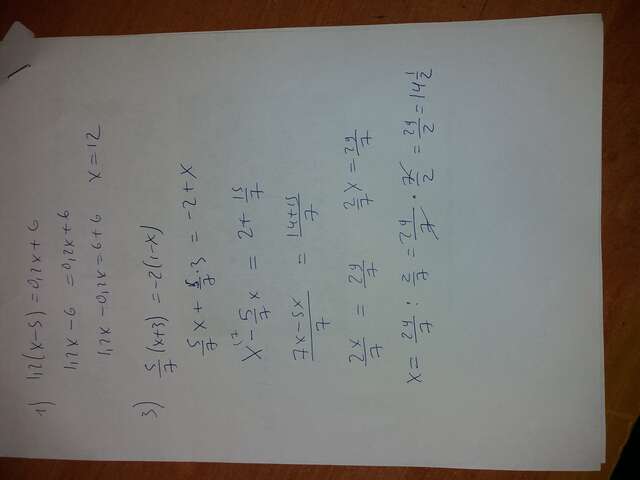 1) 1,2(x-5) = 0,2x + 6
1,2x - 6 = 0,2x + 6
1,2x - 0,2x = 6 + 6 x = 12
3) 5/7 (x+3) = -2(1-x)
5/7 x + 5/7 · 3 = -2 + x
x - 5/7 x = 2 + 15/7
7x - 5x / 7 = 14+15 / 7
2x/7 = 29/7 2/7 x = 29/7
x = 29/7 : 2/7 = 29/7 · 7/2 = 29/2 = 14 1/2